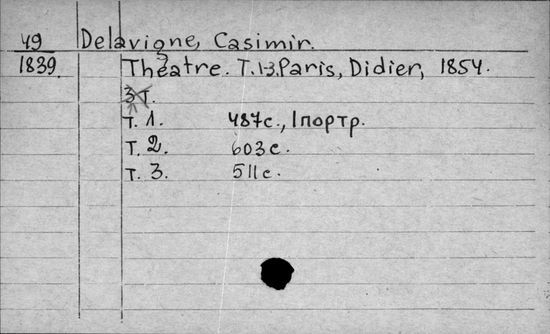 49 Delavigne, Casimir.
1839 Théatre. T. 1-3. Paris, Didier, 1854.
3 т.
Т. 1. 487 с., 1 портр.
Т. 2. 603 с.
Т. 3. 511 с.